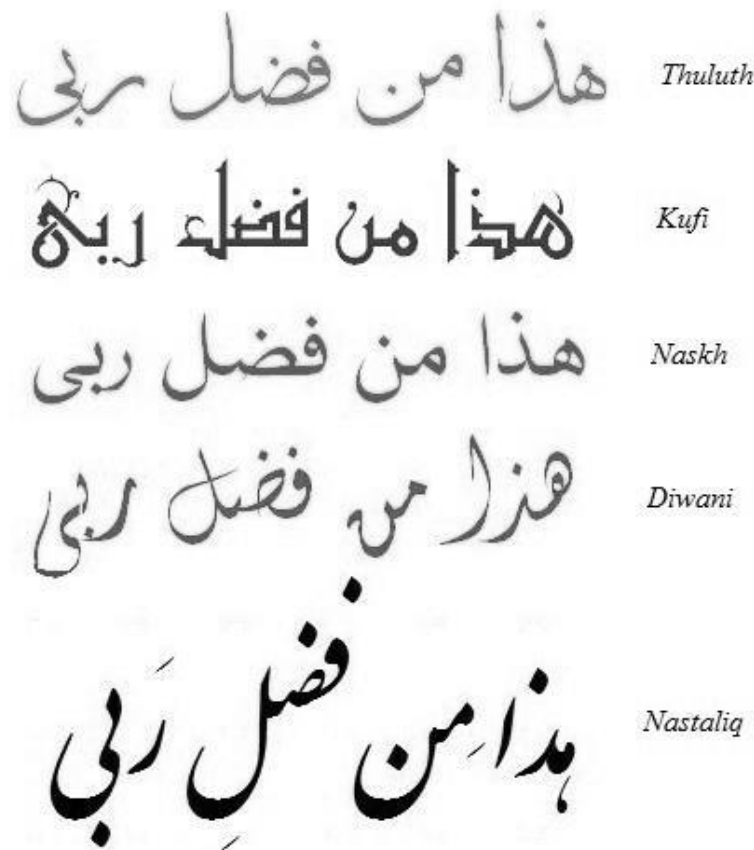 هذا من فضل ربي Thuluth
هذا من فضل ربي Kufi
هذا من فضل ربي Naskh
هذا من فضل ربي Diwani
هذا مِن فضلِ رَبي Nastaliq